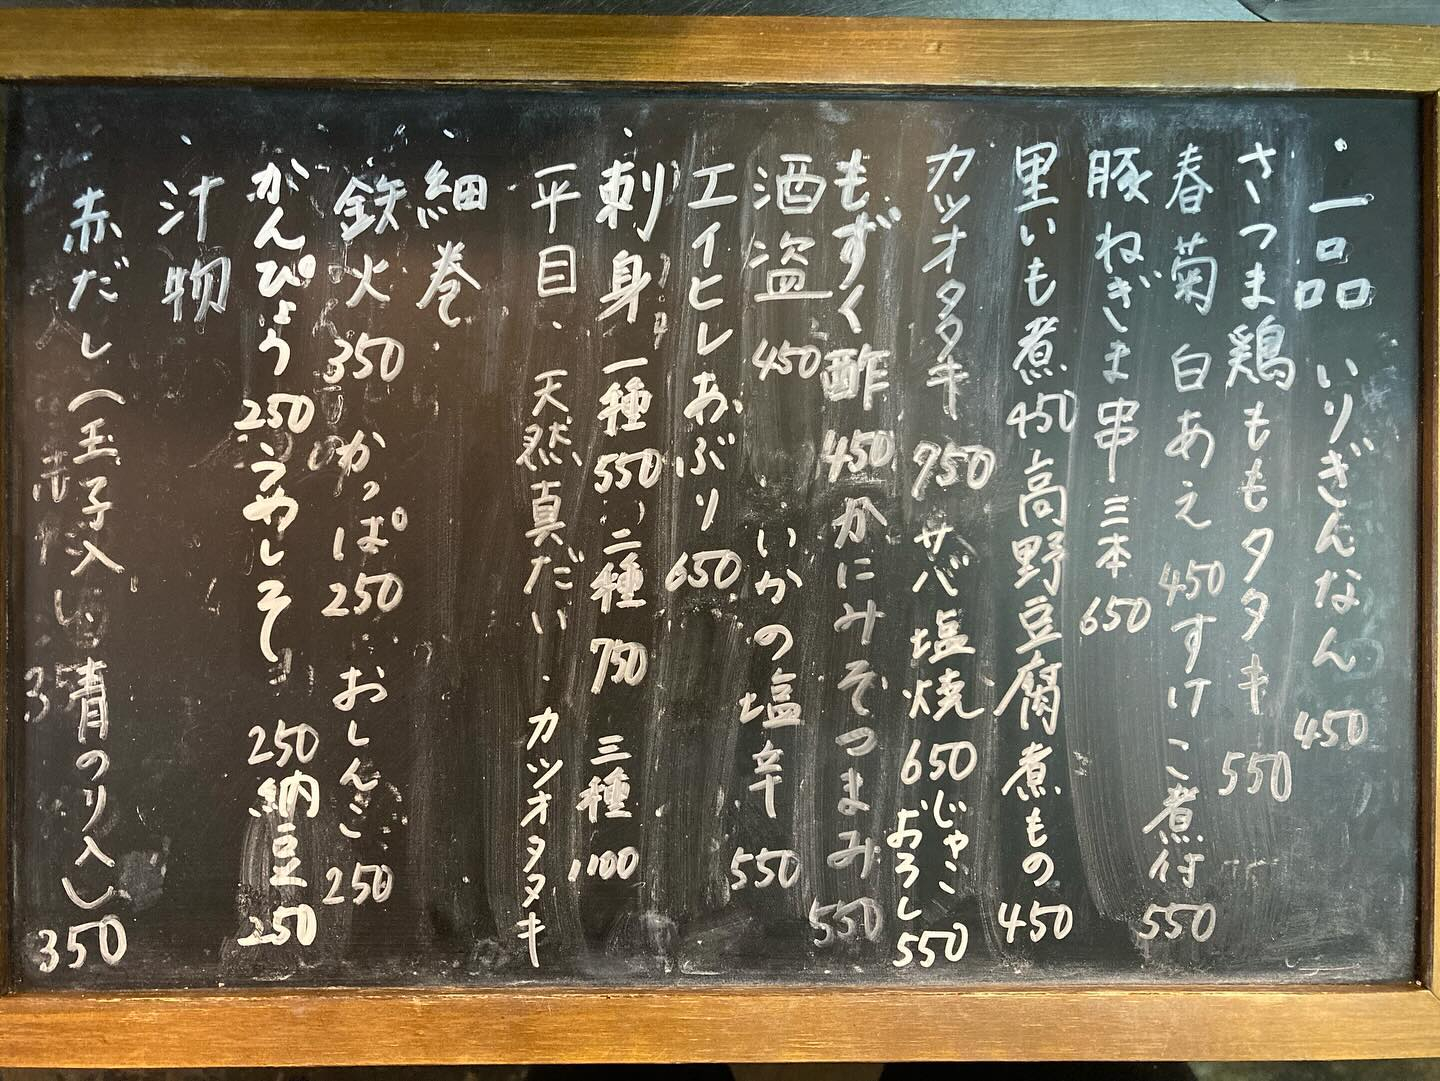 ・一品 いりぎんなん 450
さつま鶏ももタタキ 550
春菊白あえ 450 すけこ煮付 550
豚ねぎま串三本 650
里いも煮 450 高野豆腐煮もの 450
カツオタタキ 750 サバ塩焼 650 じゃこおろし 550
もずく酢 450 かにみそつまみ 550
酒盗 450 いかの塩辛 550
エイヒレあぶり 650
・刺身 一種 550 二種 750 三種 1100
平目・天然真だい・カツオタタキ
・細巻
鉄火 350 かっぱ 250 おしんこ 250
かんぴょう 250 うめしそ 250 納豆 250
・汁物
赤だし(玉子入り、青のり入り) 350